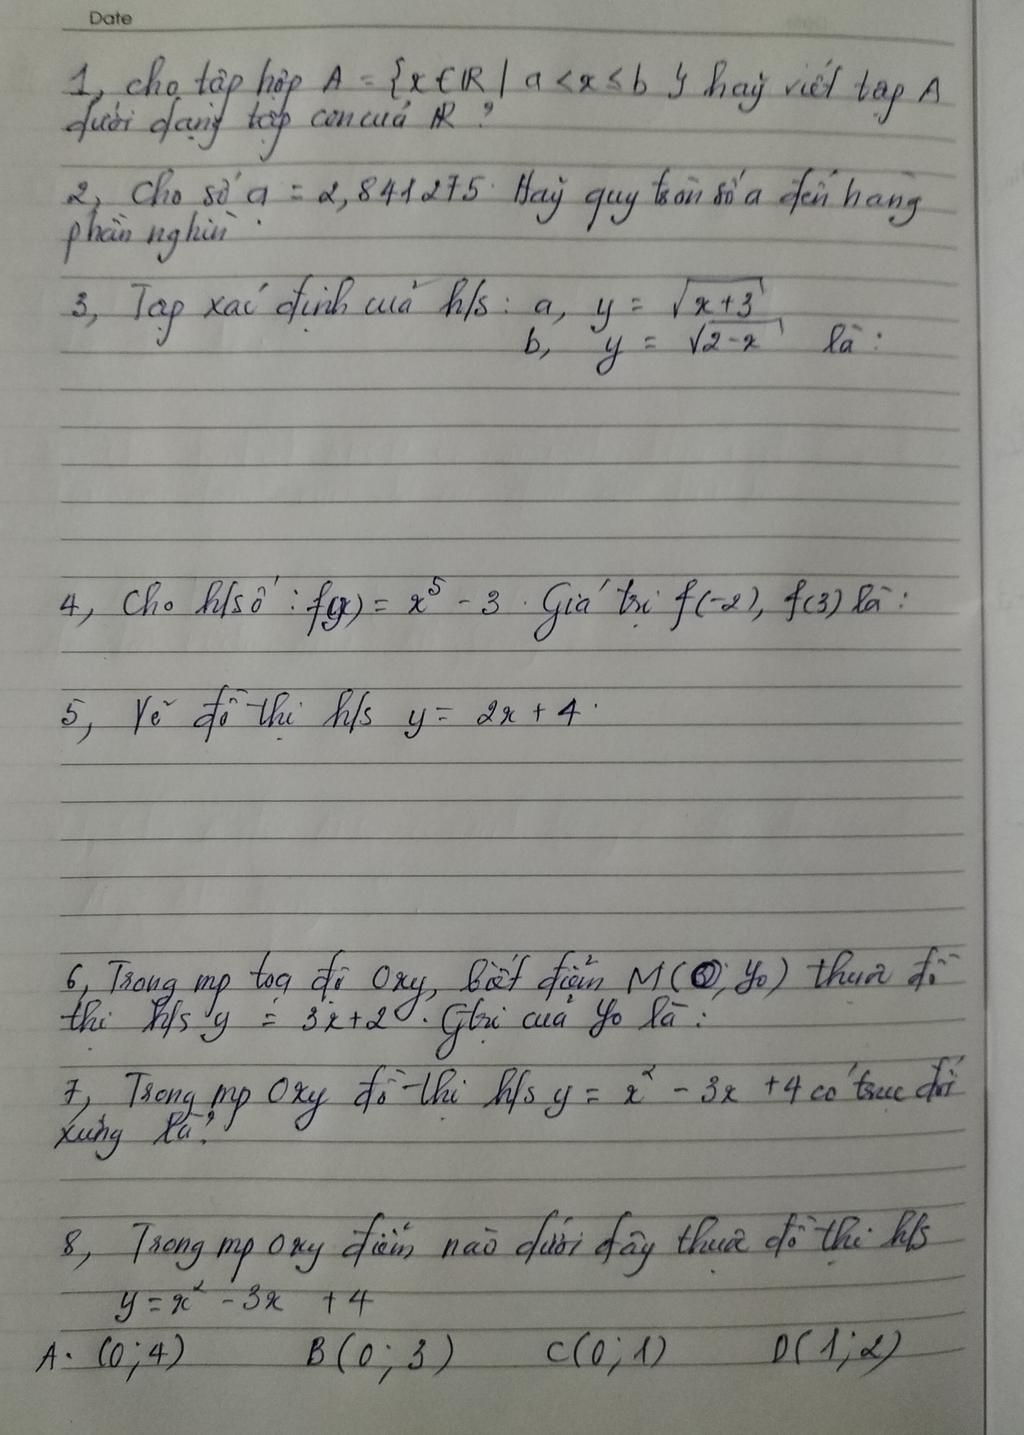 Date
1, cho tập hợp A = {x ∈ ℝ | a < x ≤ b } hãy viết tập A
dưới dạng tập con của ℝ ?
2, Cho số a = 2,841275. Hãy quy tròn số a đến hàng
phần nghìn.
3, Tập xác định của h/s : a, y = √(x+3)
b, y = √(2-x) là :
4, Cho h/số : f(x) = x⁵ - 3 . Giá trị f(-2), f(3) là :
5, Vẽ đồ thị h/s y = 2x + 4.
6, Trong mp toạ độ Oxy, biết điểm M(0; y₀) thuộc đồ
thị h/s y = 3x+2 . Gtrị của y₀ là :
7, Trong mp Oxy đồ thị h/s y = x² - 3x + 4 có trục đối
xứng là?
8, Trong mp Oxy điểm nào dưới đây thuộc đồ thị h/s
y = x² - 3x + 4
A. (0; 4) B(0; 3) C(0; 1) D(1; 2)